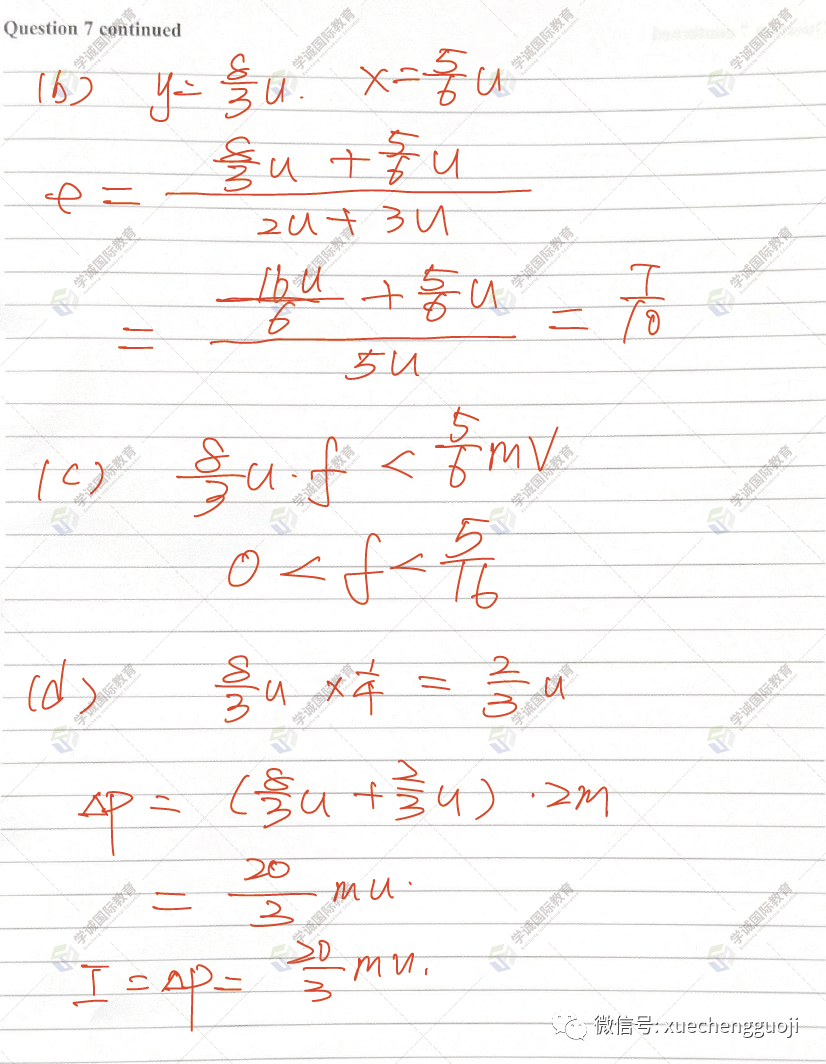 Question 7 continued
(b) y = 8/3 u. x = 5/6 u
e = (8/3 u + 5/6 u) / (2u + 3u)
= (16u/6 + 5/6 u) / 5u = 7/10
(c) 8/3 u · f < 5/6 mV
0 < f < 5/16
(d) 8/3 u × 1/4 = 2/3 u
ΔP = (8/3 u + 2/3 u) · 2m
= 20/3 mu.
I = ΔP = 20/3 mu.
微信号: xuechengguoji
学诚国际教育